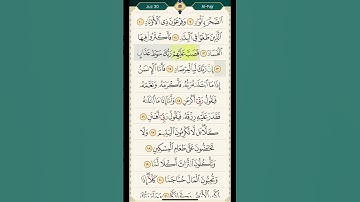 Juz 30
Al-Fajr
ٱلصَّخْرَ بِٱلْوَادِ ٩ وَفِرْعَوْنَ ذِى ٱلْأَوْتَادِ ١٠
ٱلَّذِينَ طَغَوْا۟ فِى ٱلْبِلَـٰدِ ١١ فَأَكْثَرُوا۟ فِيهَا
ٱلْفَسَادَ ١٢ فَصَبَّ عَلَيْهِمْ رَبُّكَ سَوْطَ عَذَابٍ
١٣ إِنَّ رَبَّكَ لَبِٱلْمِرْصَادِ ١٤ فَأَمَّا ٱلْإِنسَـٰنُ
إِذَا مَا ٱبْتَلَىٰهُ رَبُّهُۥ فَأَكْرَمَهُۥ وَنَعَّمَهُۥ
فَيَقُولُ رَبِّىٓ أَكْرَمَنِ ١٥ وَأَمَّآ إِذَا مَا ٱبْتَلَىٰهُ
فَقَدَرَ عَلَيْهِ رِزْقَهُۥ فَيَقُولُ رَبِّىٓ أَهَـٰنَنِ ١٦
كَلَّا ۖ بَل لَّا تُكْرِمُونَ ٱلْيَتِيمَ ١٧ وَلَا
تَحَـٰٓضُّونَ عَلَىٰ طَعَامِ ٱلْمِسْكِينِ ١٨
وَتَأْكُلُونَ ٱلتُّرَاثَ أَكْلًا لَّمًّا ١٩
وَتُحِبُّونَ ٱلْمَالَ حُبًّا جَمًّا ٢٠ كَلَّآ إِذَا